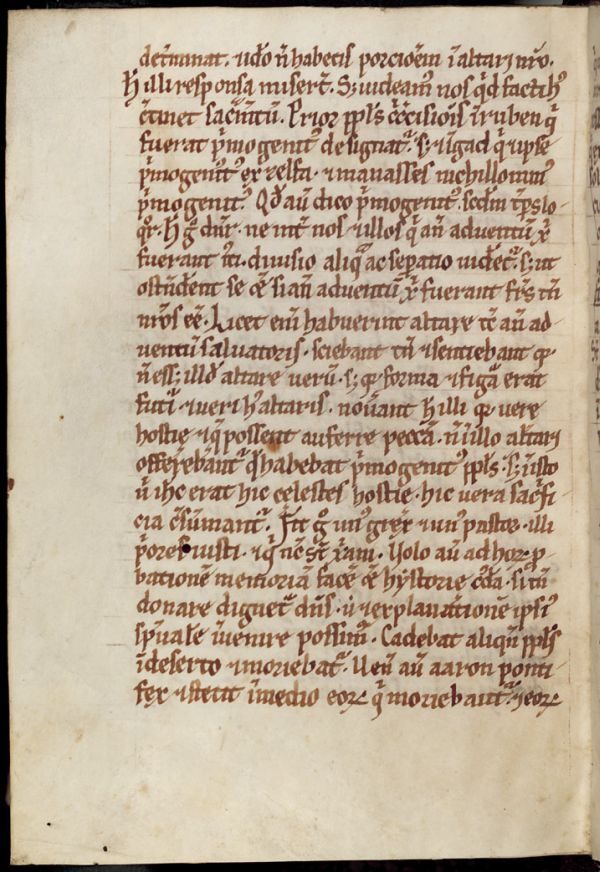 det̄minat. ⁊ idō n̄ habetis porcionē̄ ī altari nr̄o.
H̄ illi responsa miserт̄. S; uideam⁹ nos q̇d facti hⁱ⁹
ↄtinet sac̄mtū. Prior ppl̄s c̄ccisiōis ī ruben q̄
fuerat p̄mogenit⁹ designat᷑. s; ⁊ ī gad q̄ ⁊ ip̄se
p̄mogenit⁹ ex zelfa. ⁊ manasses nichillomin⁹
p̄mogenit⁹. Qđ aū dico p̄mogenit⁹. scdm̄ tp̄s lo-
q̊r. H̄ g̊ dn̄r. ne int̄ nos ⁊ illos q̄ an̄ adventū xp̄i
fuerant iⁱti. divisio aliq̄ ac seperatio uidet᷑. s; ut
ostn̄dent se ēē siān adventū xp̄i fuerant fr̄s tn̄
nr̄os eē. Licet eni habuerint altare t̄c an̄ ad-
ventū salvatoris. sciebant tn̄ ⁊ sentiebant qͥ
n̄ ess; illđ altare verū. s; qͥ forma ⁊ figᷓ erat
futᷓi ⁊ veri hⁱ altaris. novᷓant h̄ illi qͥ vere
hostie ⁊ q̄ possent auferre peccᷓa. n̄ ī illo altari
offerebant᷑ q̊ habebat p̄mogenit⁹ ppl̄s. s; ī isto
ū ih̄c erat hic celestes hostie. hic vera sac̄fi-
cia ↄsumant᷑. Fit g̊ un⁹ grex ⁊ un⁹ pastor. illi
p̄ores iusti. ⁊ q̄ nc̄ st̄ xp̄iani. Volo aū ad hoꝝ p-
bationē memoriā facē ēē hẏstorie c̄dā. si tn̄
donare dignet᷑ dn̄s. ū ⁊ explanationē ipsi⁹
sp̄uale īvenire possim⁹. Cadebat aliqn̄ ppl̄s
ī deserto ⁊ moriebat᷑. Uēn̄ aū aaron ponti-
fex ⁊ stetit ī medio eoꝝ q̄ moriebant᷑. ⁊ eoꝝ